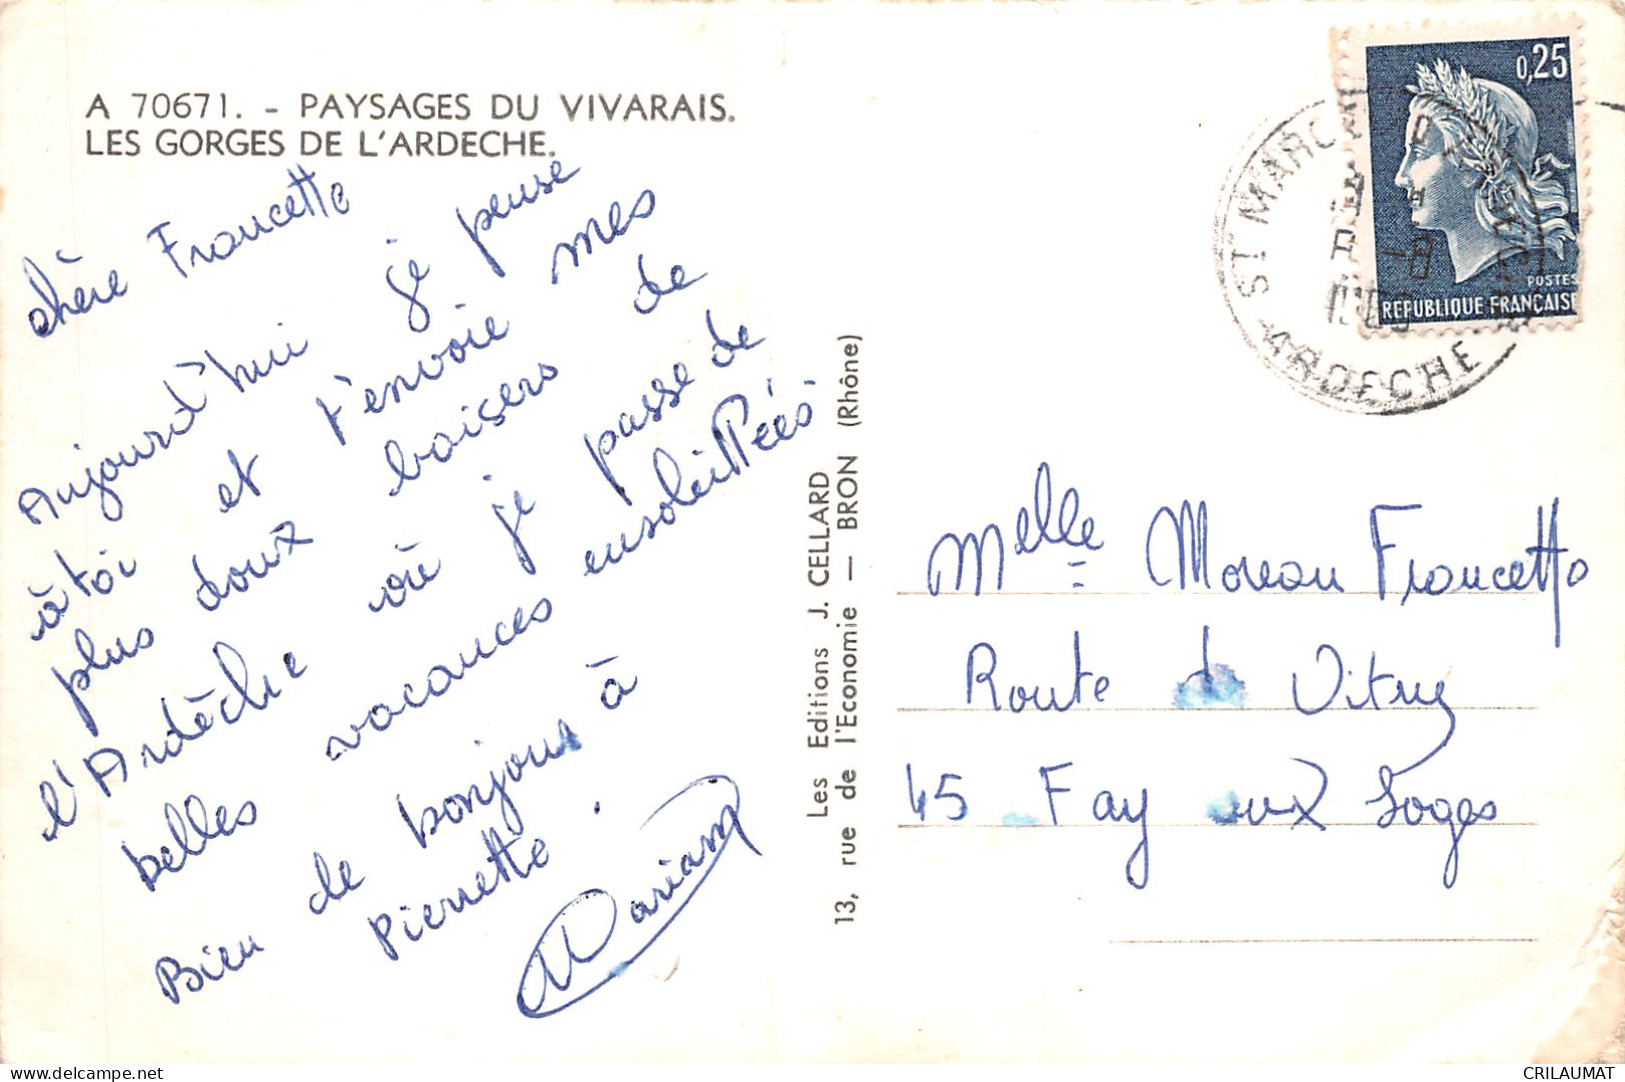 A 70671. - PAYSAGES DU VIVARAIS.
LES GORGES DE L'ARDECHE.
chère Francette
Aujourd'hui je pense
à toi et t'envoie mes
plus doux baisers de
l'Ardèche où je passe de
belles vacances ensoleittéés.
Bien de bonjous à
Pierrette.
Mariam
Les Editions J. CELLARD
13, rue de l'Economie — BRON (Rhône)
0,25
POSTES
REPUBLIQUE FRANÇAISE
ST MARC
ARDECHE
Melle Moreau Francette
Route de Vitry
45 Fay aux Loges
CRILAUMAT